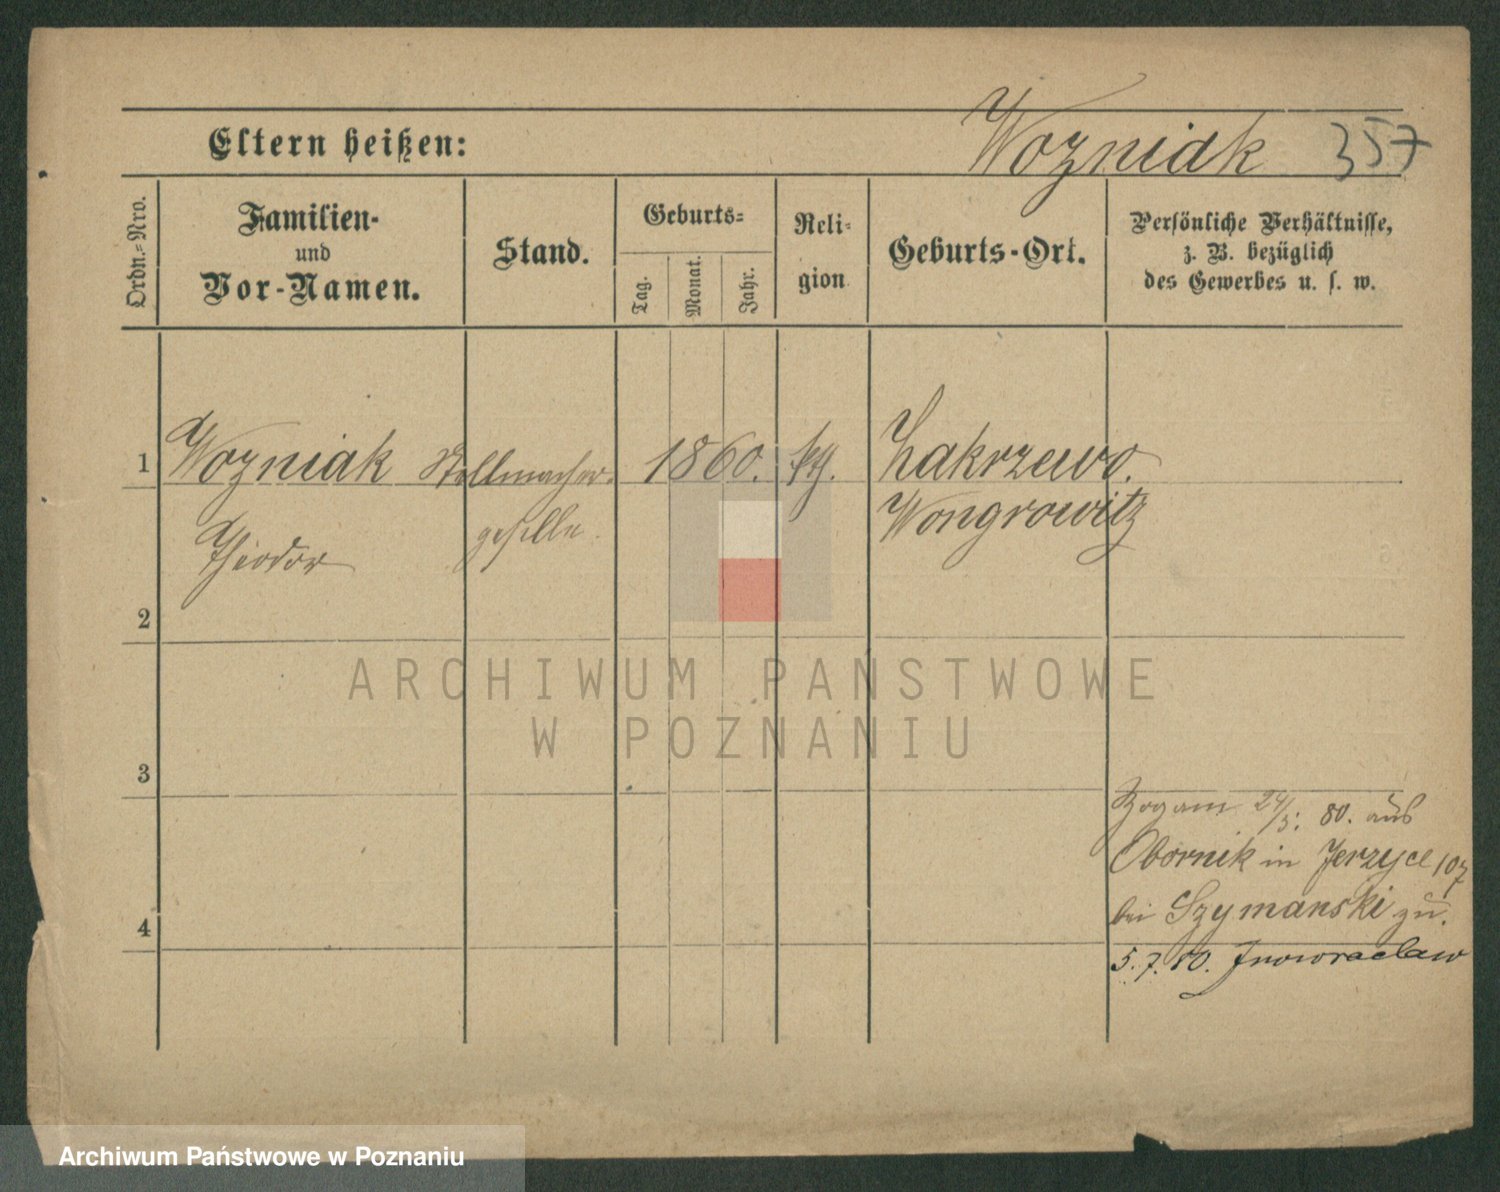 Eltern heißen:
Wozniak 357
Ordn.-Nro.
Familien-
und
Vor-Namen.
Stand.
Geburts-
Tag.
Monat.
Jahr.
Reli-
gion
Geburts-Ort.
Persönliche Verhältnisse,
z. B. bezüglich
des Gewerbes u. s. w.
1 Wozniak Stellmacher- 1860. kth. Zakrzewo.
Theodor geselle. Wongrowitz
2
3
4
Zog am 24/5. 80. aus
Obornik in Jerzyce 107
bei Szymanski zu.
5.7.80. Inowraclaw
ARCHIWUM PAŃSTWOWE
W POZNANIU
Archiwum Państwowe w Poznaniu